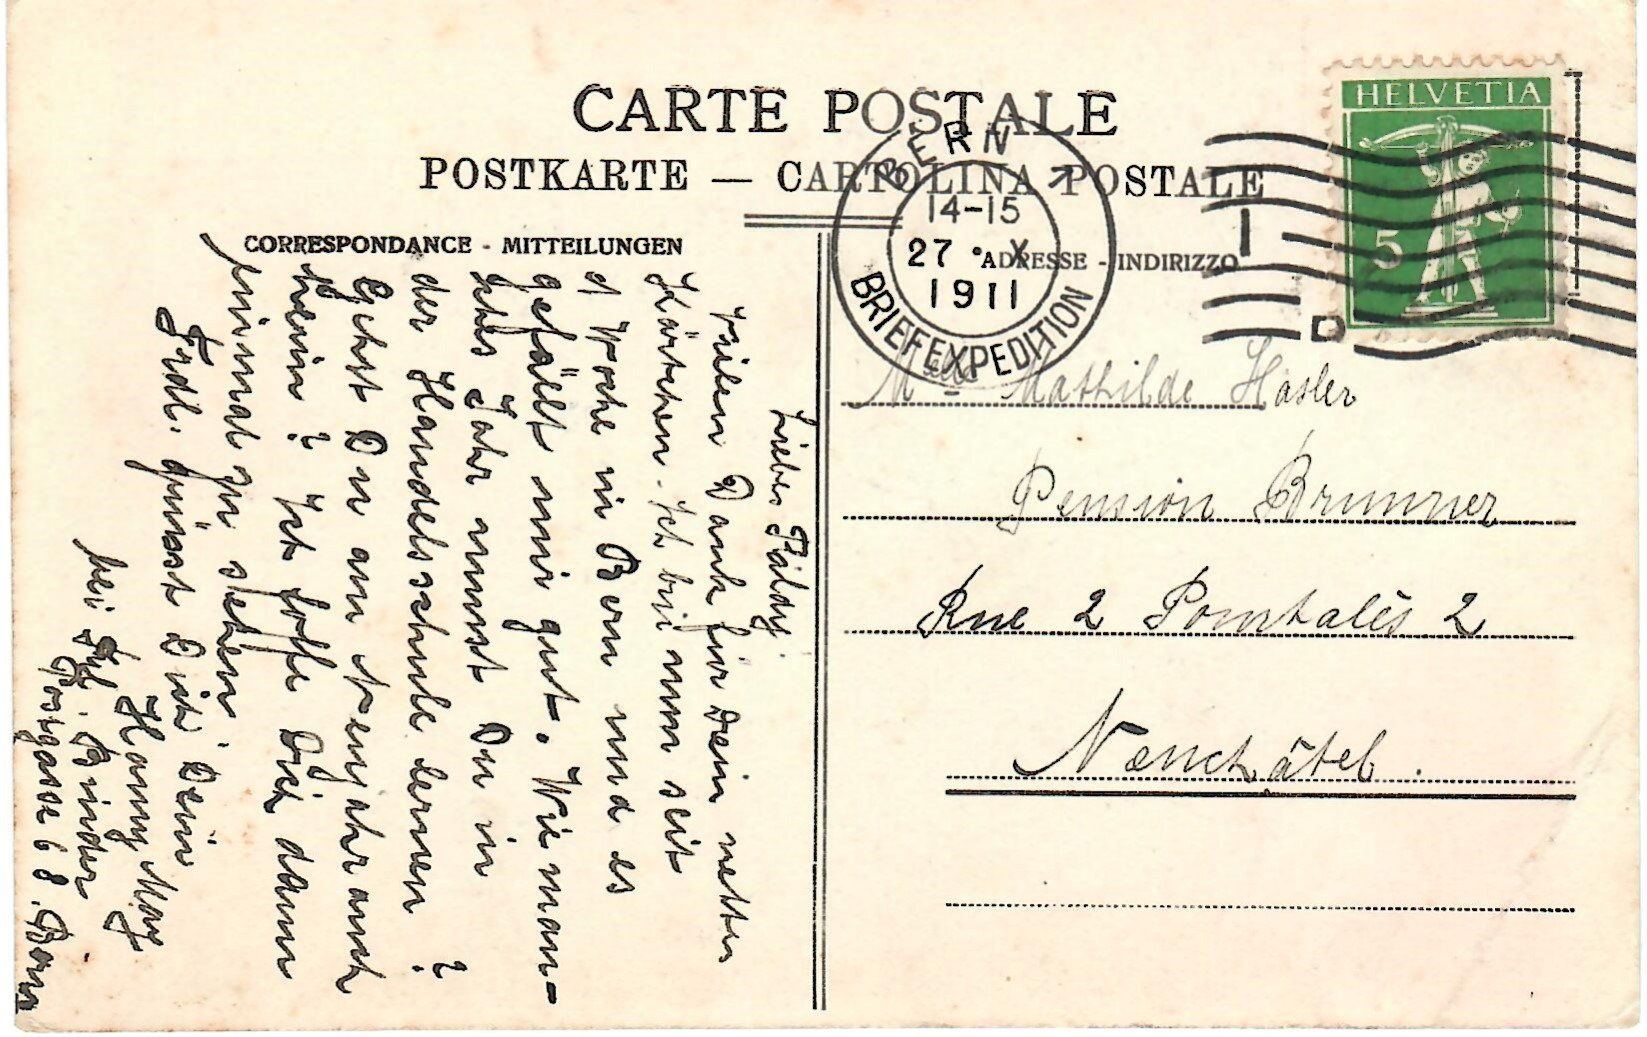 CARTE POSTALE
POSTKARTE — CARTOLINA POSTALE
CORRESPONDANCE - MITTEILUNGEN
ADRESSE - INDIRIZZO
HELVETIA
5
BERN 1
14-15
27 · X
1911
BRIEFEXPEDITION
Mlle Mathilde Hasler
Pension Brunner
Rue 2 Pourtalès 2
Neuchâtel.
Liebes
Vielen Dank für Dein nettes
Kärtchen. Ich bin nun seit
Woche in Bern und es
gefällt mir gut. Wie man-
ches Jahr musst Du in
der Handelsschule lernen?
Gehst Du am Neujahr auch
heim? Ich hoffe Dich dann
einmal zu sehen.
Frdl. grüsst Dich Dein
Hanny May
bei Binder
Postgasse 68. Bern